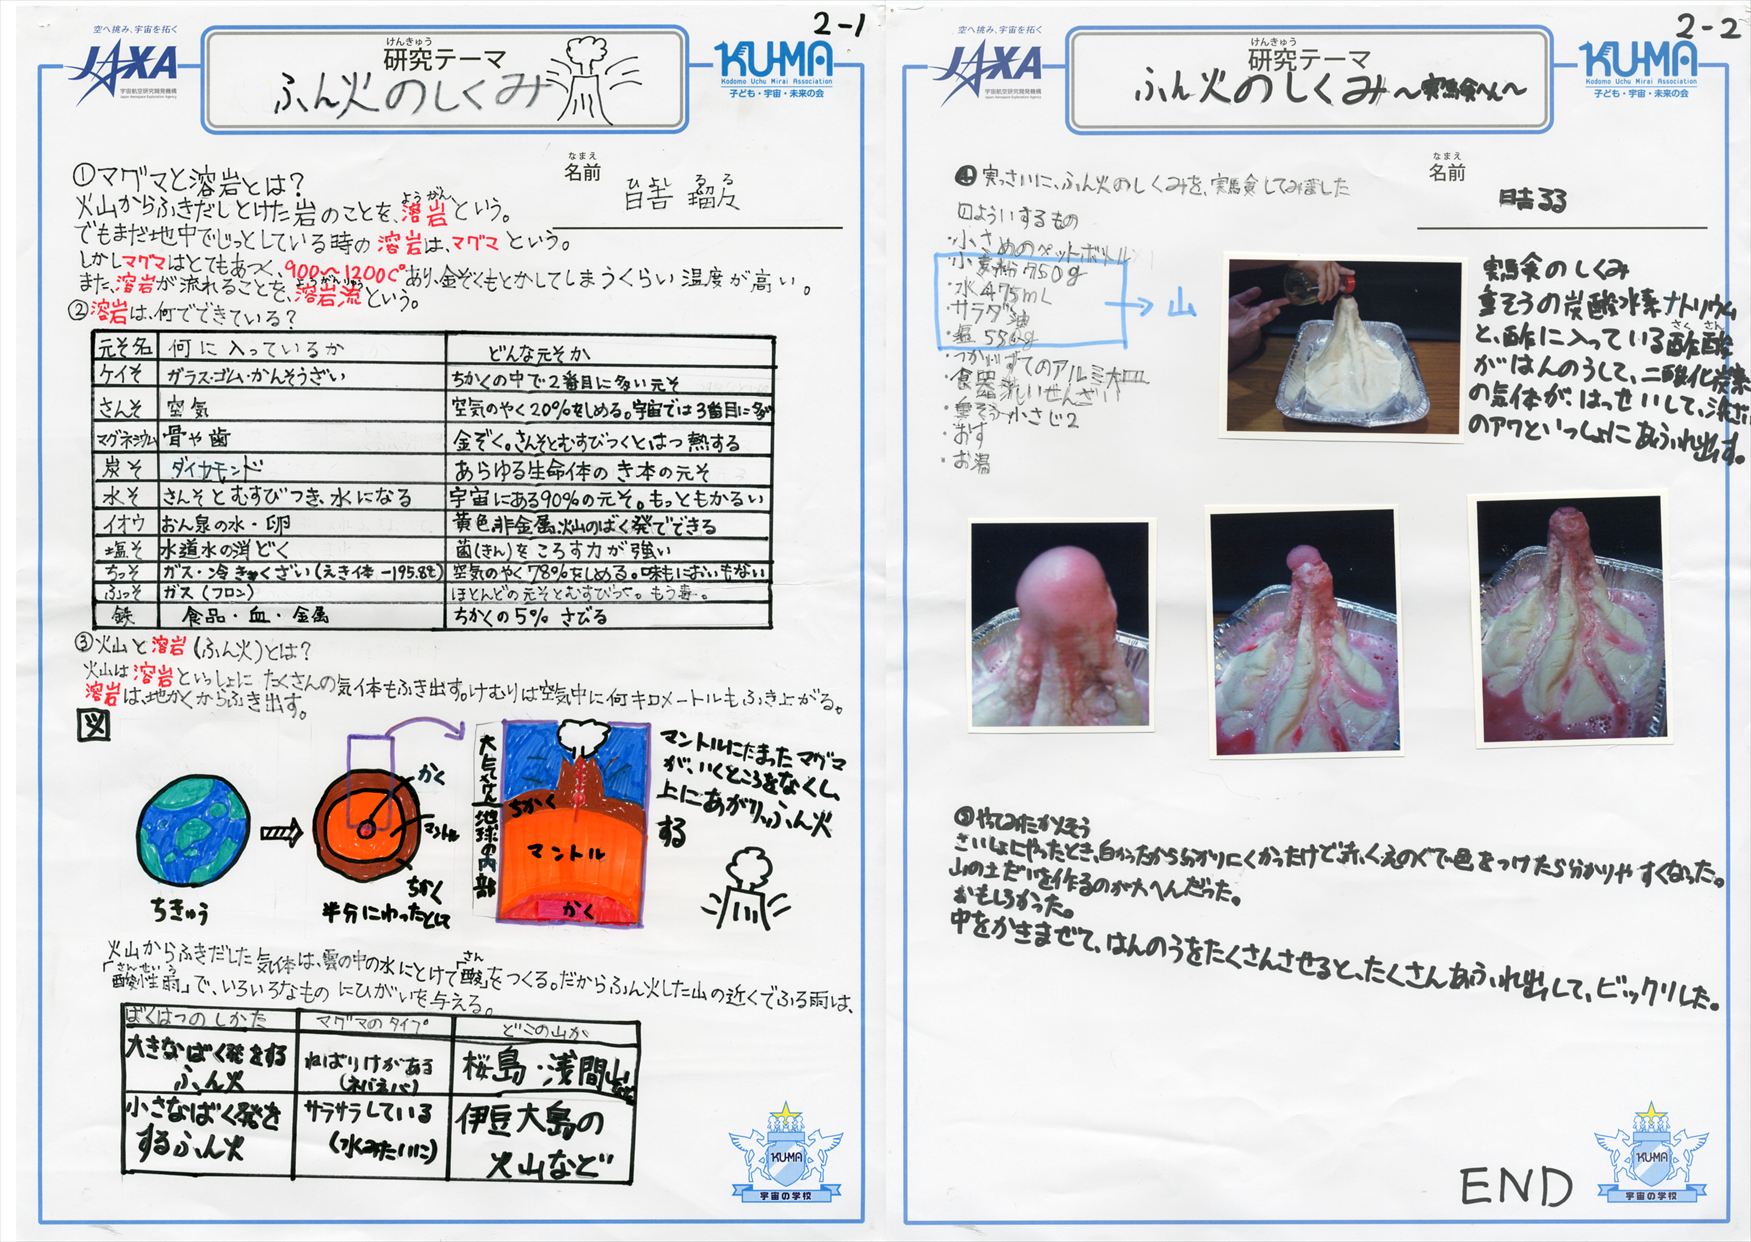 2-1
空へ挑み、宇宙を拓く
JAXA
宇宙航空研究開発機構
Japan Aerospace Exploration Agency
けんきゅう
研究テーマ
ふん火のしくみ
KU-MA
Kodomo Uchu Mirai Association
子ども・宇宙・未来の会
なまえ
名前
ひよし るる
日吉 瑠々
①マグマと溶岩とは?
火山からふきだしとけた岩のことを、溶岩という。
ようがん
でもまだ地中でじっとしている時の溶岩は、マグマという。
しかしマグマはとてもあつく、900〜1200C°あり、金ぞくもとかしてしまうくらい温度が高い。
また、溶岩が流れることを、溶岩流という。
ようがんりゅう
②溶岩は、何でできている?
元そ名 何に入っているか どんな元そか
ケイそ ガラス・ゴム・かんそうざい ちかくの中で2番目に多い元そ
さんそ 空気 空気のやく20%をしめる。宇宙では3番目に多い
マグネシウム 骨や歯 金ぞく。さんそとむすびつくとはつ熱する
炭そ ダイヤモンド あらゆる生命体のき本の元そ
水そ さんそとむすびつき、水になる 宇宙にある90%の元そ。もっともかるい
イオウ おん泉の水・卵 黄色。非金属。火山のばく発でできる
塩そ 水道水の消どく 菌(きん)をころす力が強い
ちっそ ガス・冷きゃくざい(えき体-195.8℃) 空気のやく78%をしめる。味もにおいもない
ふっそ ガス(フロン) ほとんどの元そとむすびつく。もう毒。
鉄 食品・血・金属 ちかくの5% さびる
③火山と溶岩(ふん火)とは?
火山は溶岩といっしょにたくさんの気体もふき出す。けむりは空気中に何キロメートルもふき上がる。
溶岩は、地かくからふき出す。
図
ちきゅう
かく
マントル
ちかく
半分にわったとして
大気けん
地球の内部
ちかく
マントル
かく
マントルにたまったマグマ
が、いくところをなくし、
上にあがり、ふん火
する
火山からふきだした気体は、雲の中の水にとけて「酸」をつくる。だからふん火した山の近くでふる雨は、
さん
さんせいう
「酸性雨」で、いろいろなものにひがいを与える。
ばくはつのしかた マグマのタイプ どこの山か
大きなばく発をするふん火 ねばりけがある(ネバネバ) 桜島・浅間山など
小さなばく発をするふん火 サラサラしている(水みたいに) 伊豆大島の火山など
KU-MA
宇宙の学校
2-2
空へ挑み、宇宙を拓く
JAXA
宇宙航空研究開発機構
Japan Aerospace Exploration Agency
けんきゅう
研究テーマ
ふん火のしくみ〜実験へん〜
KU-MA
Kodomo Uchu Mirai Association
子ども・宇宙・未来の会
なまえ
名前
日吉るる
④実っさいに、ふん火のしくみを、実験してみました
□よういするもの
・小さめのペットボトル
・小麦粉750g
・水475mL
・サラダ油
・塩
→山
・つかいすてのアルミ大皿
・食器洗いせんざい
・重そう小さじ2
・おす
・お湯
実験のしくみ
重そうの炭酸水素ナトリウム
と、酢に入っている酢酸
さくさん
がはんのうして、二酸化炭素
の気体が、はっせいして、洗ざい
のアワといっしょにあふれ出す。
⑤やってみたかんそう
さいしょにやったとき、白かったから分かりにくかったけど赤くえのぐで色をつけたら分かりやすくなった。
山の土だいを作るのが大へんだった。
おもしろかった。
中をかきまぜて、はんのうをたくさんさせると、たくさんあふれ出して、ビックリした。
END
KU-MA
宇宙の学校